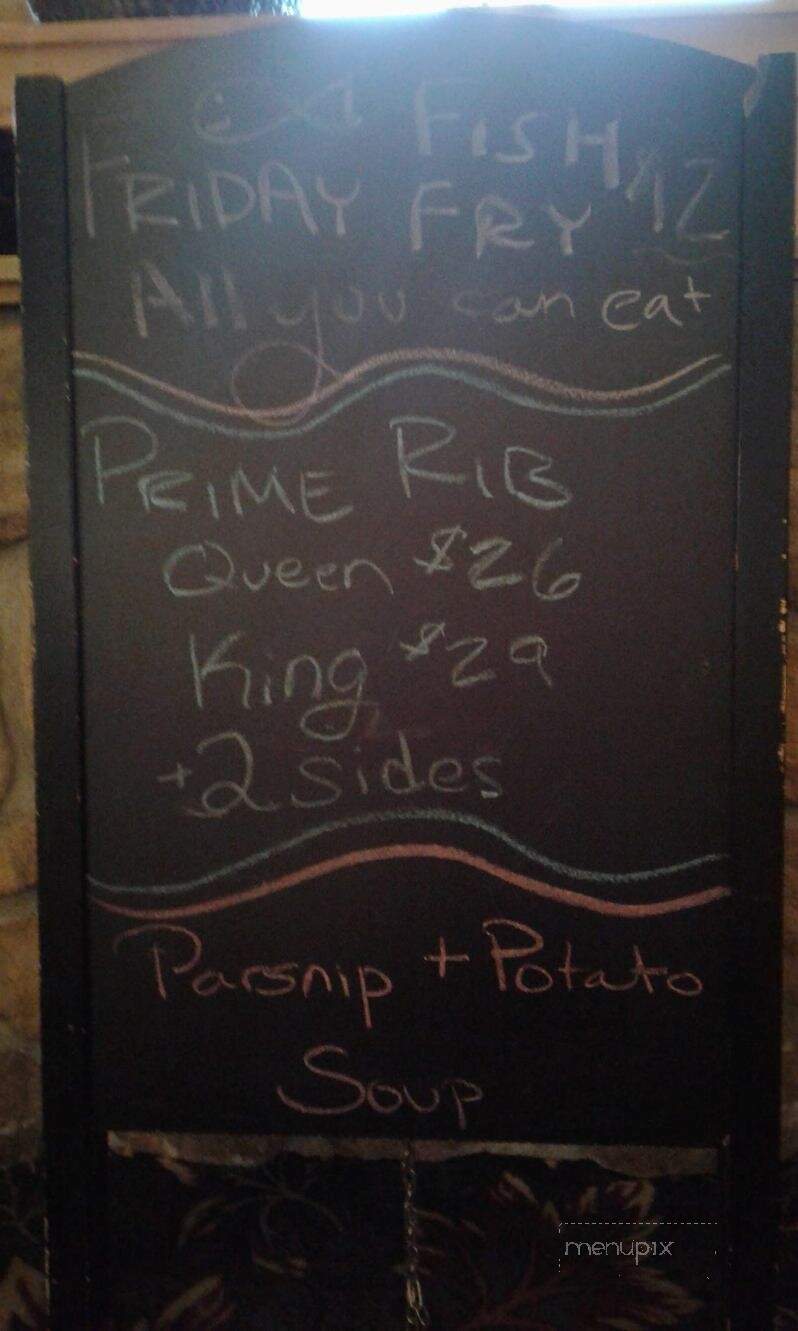 FISH
FRIDAY FRY $12
All you can eat
PRIME RIB
Queen $26
King $29
+2 sides
Parsnip + Potato
Soup
menupix